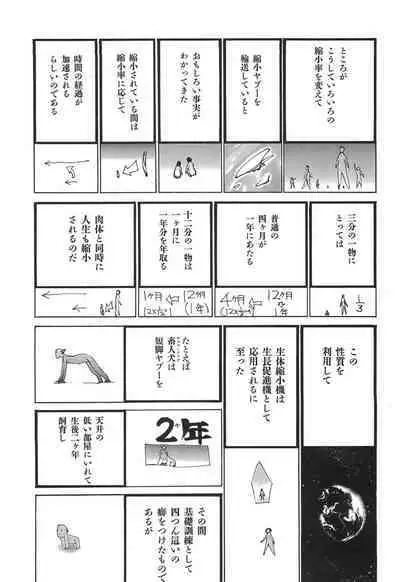 ところが
こうしていろいろの
縮小率を変えて
縮小ヤプーを
輸送していると
おもしろい事実が
わかってきた
縮小されている間は
縮小率に応じて
時間の経過が
加速される
らしいのである
三分の一物に
とっては
1/3
普通の
四ヶ月が
一年にあたる
12ヶ月
(1年)
4ヶ月
十二分の一物は
一ヶ月に
一年分を年取る
12ヶ月
(1年)
1ヶ月
肉体と同時に
人生も縮小
されるのだ
この
性質を
利用して
生体縮小機は
生長促進機として
応用されるに
至った
たとえば
畜人犬は
短脚ヤプーを
2ヶ年
天井の
低い部屋にいれて
生後二ヶ年
飼育し
その間
基礎訓練として
四つん這いの
癖をつけたもので
あるが